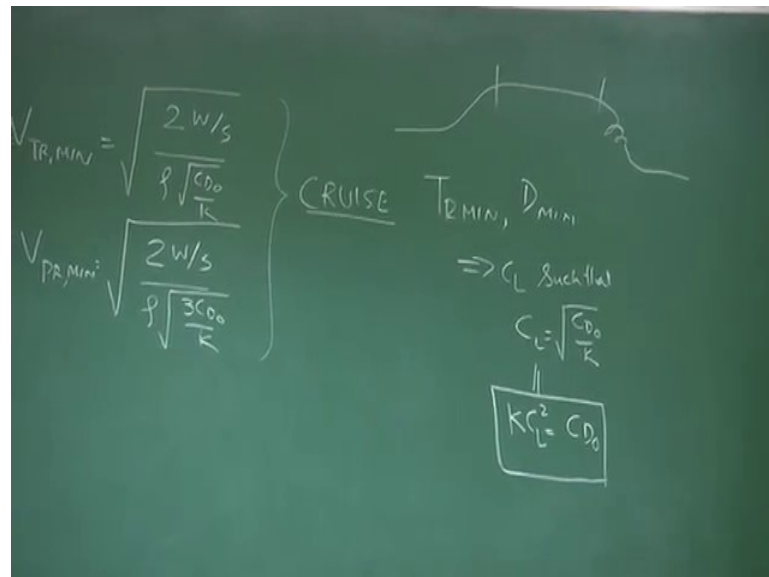 V_TR,MIN = √(2 W/S / (ρ √(C_D0 / K)))
V_PR,MIN = √(2 W/S / (ρ √(3C_D0 / K)))
CRUISE T_RMIN, D_MIN
⇒ C_L Such that
C_L = √(C_D0 / K)
||
KC_L² = C_D0